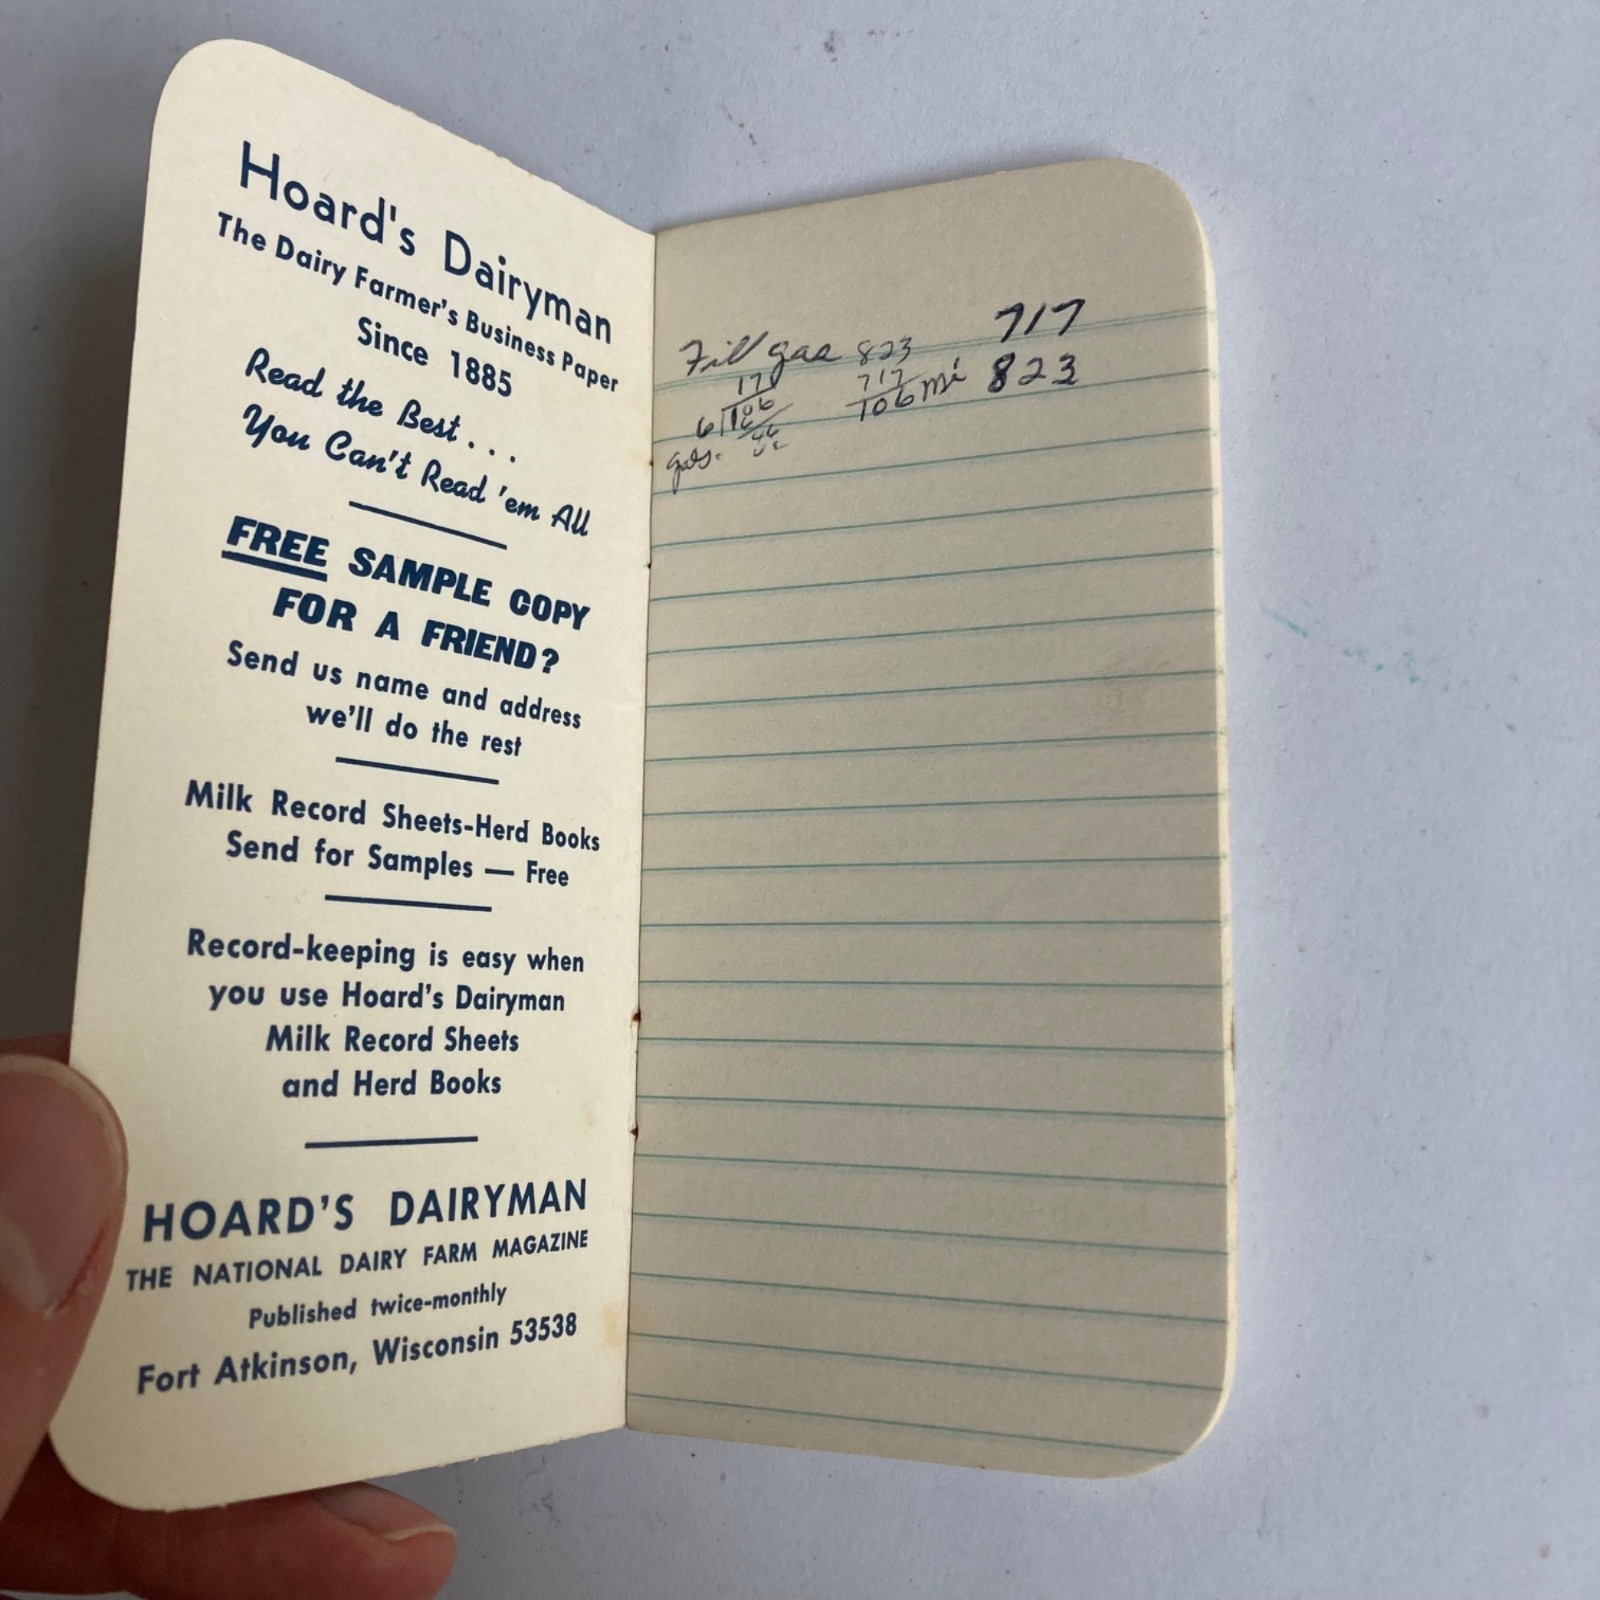 Hoard's Dairyman
The Dairy Farmer's Business Paper
Since 1885
Read the Best . . .
You Can't Read 'em All
FREE SAMPLE COPY
FOR A FRIEND?
Send us name and address
we'll do the rest
Milk Record Sheets-Herd Books
Send for Samples — Free
Record-keeping is easy when
you use Hoard's Dairyman
Milk Record Sheets
and Herd Books
HOARD'S DAIRYMAN
THE NATIONAL DAIRY FARM MAGAZINE
Published twice-monthly
Fort Atkinson, Wisconsin 53538
717
Fill gas 823 823
17 717
6 106 106 mi
6
46
gals.